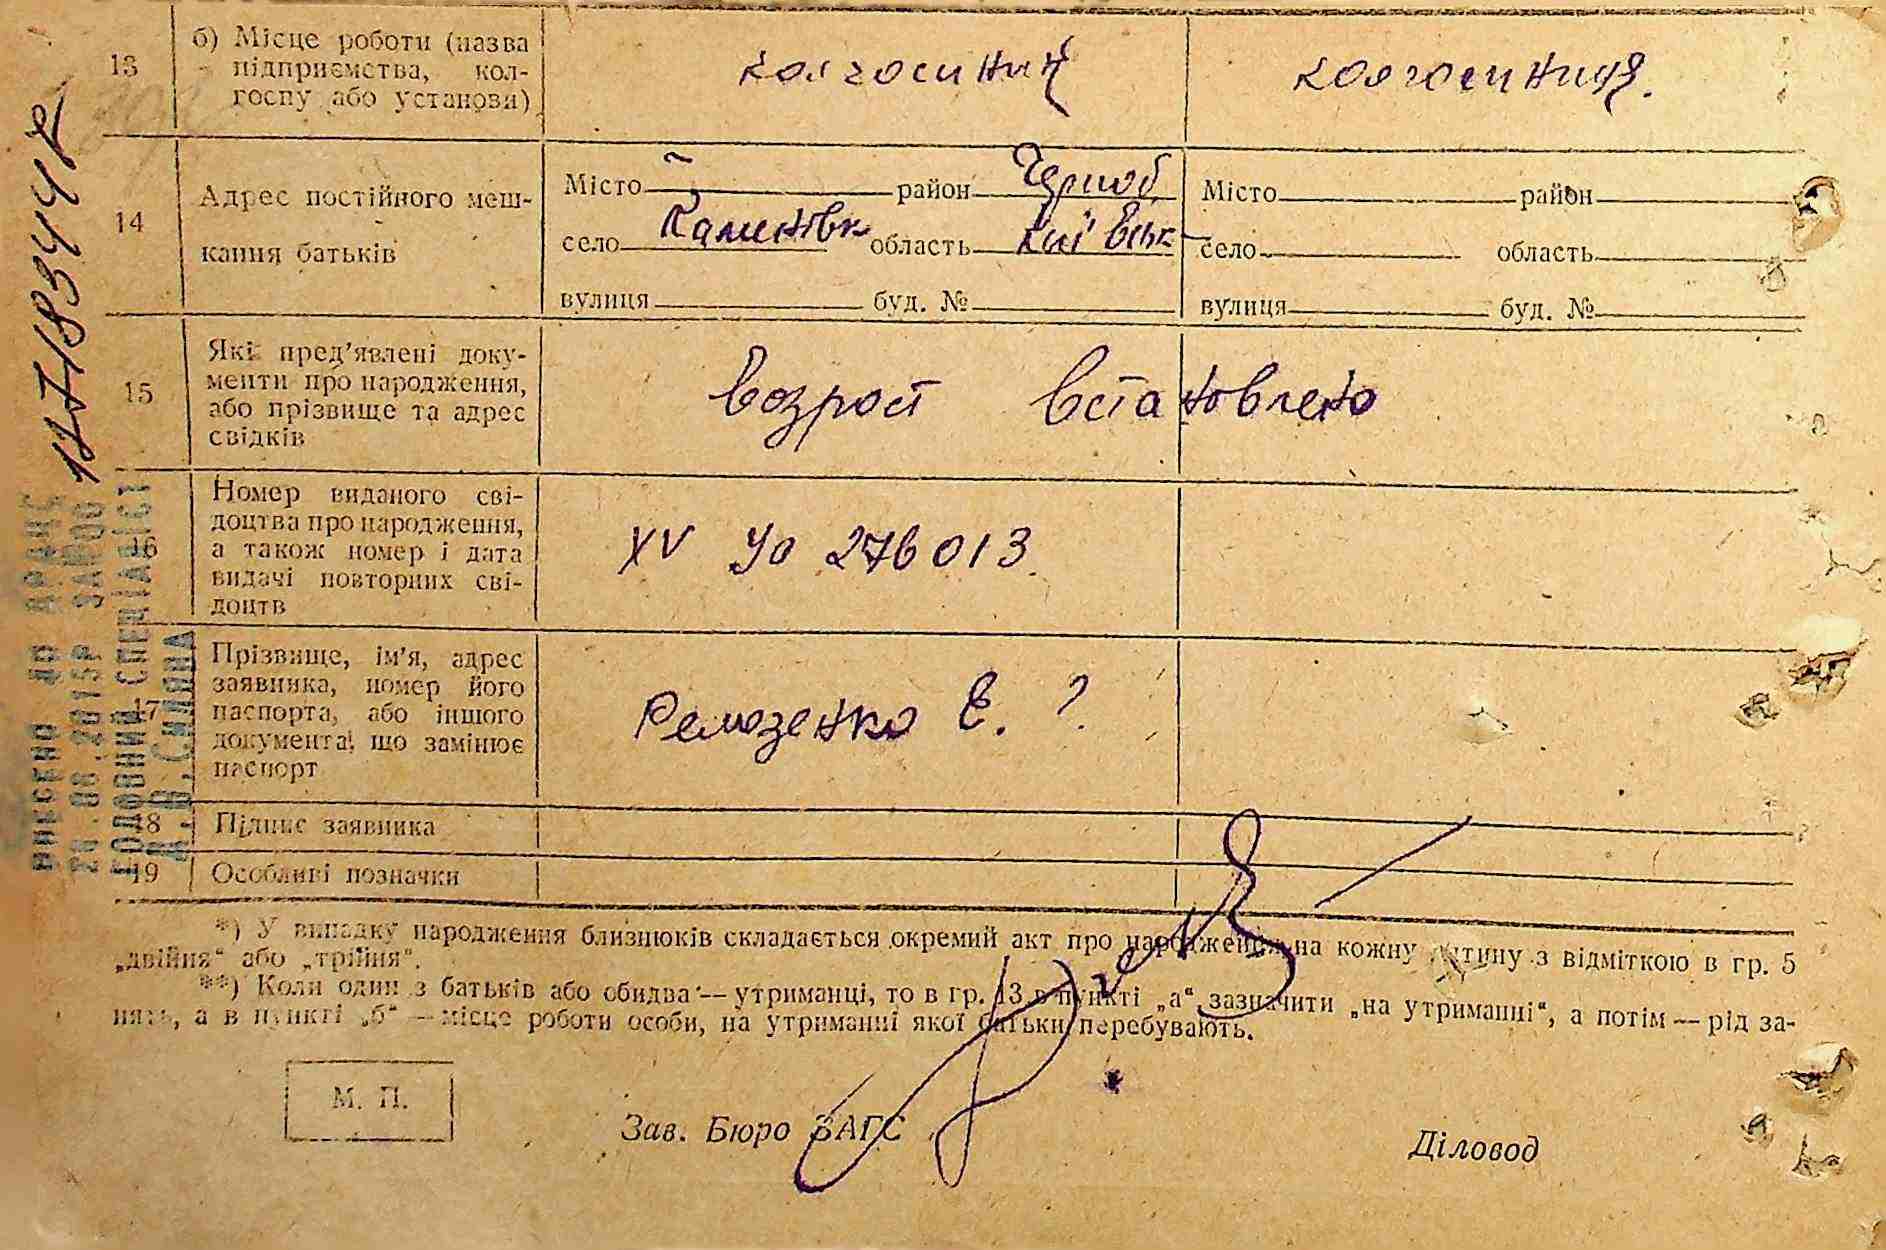 13 б) Місце роботи (назва
підприємства, кол-
госпу або установи)
колгоспник колгоспниця.
14 Адрес постійного меш-
кання батьків
Місто — район Чорноб
село область Київськ
вулиця буд. №
Місто район
село область
вулиця буд. №
15 Які пред’явлені доку-
менти про народження,
або прізвище та адрес
свідків
возрост встановлено
16 Номер виданого сві-
доцтва про народження,
а також номер і дата
видачі повторних сві-
доцтв
XV УО 276013
17 Прізвище, ім’я, адрес
заявника, номер його
паспорта, або іншого
документа, що замінює
паспорт
Е. ?
18 Підпис заявника
19 Особливі позначки
*) У випадку народження близнюків складається окремий акт про народження на кожну дитину з відміткою в гр. 5
„двійня“ або „трійня“.
**) Коли один з батьків або обидва — утриманці, то в гр. 13 в пункті „а“ зазначити „на утриманні“, а потім — рід за-
нять, а в пункті „б“ — місце роботи особи, на утриманні якої батьки перебувають.
М. П.
Зав. Бюро ЗАГС
Діловод
ВНЕСЕНО ДО ДРАЦС
ГОЛОВНИЙ СПЕЦІАЛІСТ